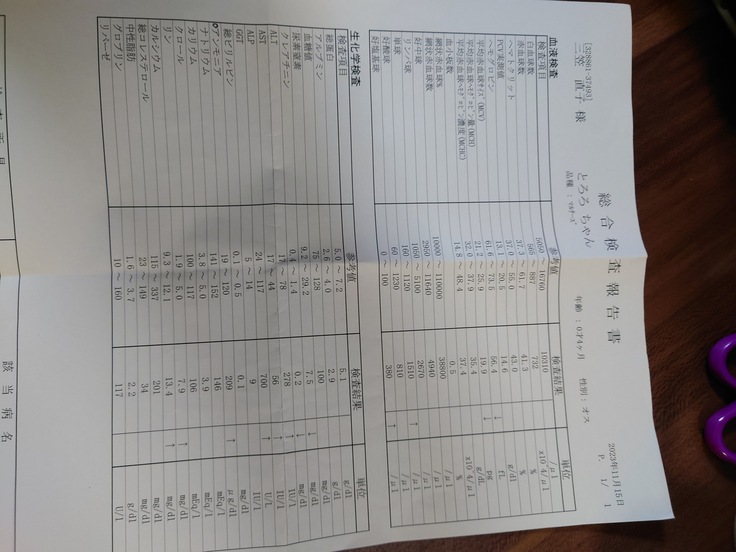 [328891-37493]
三笠 直子 様
総合検査報告書
2023年11月15日
P. 1/ 1
とろろ ちゃん
品種：ﾏﾙﾁｰｽﾞ
年齢：0才4ヶ月 性別：オス
血液検査
検査項目 参考値 検査結果 単位
白血球数 5050 ～ 16760 10310 /μl
赤血球数 565 ～ 887 732 x10^4/μl
ヘマトクリット 37.3 ～ 61.7 41.3 %
PCV実測値 37.0 ～ 55.0 43.0 %
ヘモグロビン 13.1 ～ 20.5 14.6 g/dl
平均赤血球ｻｲｽﾞ(MCV) 61.6 ～ 73.5 56.4 ↓ fL
平均赤血球ﾍﾓｸﾞﾛﾋﾞﾝ量(MCH) 21.2 ～ 25.9 19.9 ↓ pg
平均赤血球ﾍﾓｸﾞﾛﾋﾞﾝ濃度(MCHC) 32.0 ～ 37.9 35.4 g/dL
血小板数 14.8 ～ 48.4 37.4 x10^4/μl
網状赤血球% 0.5 %
網状赤血球数 10000 ～ 110000 38800 /μl
好中球 2950 ～ 11640 4940 /μl
リンパ球 1050 ～ 5100 2670 /μl
単球 160 ～ 1120 1510 ↑ /μl
好酸球 60 ～ 1230 810 /μl
好塩基球 0 ～ 100 380 ↑ /μl
生化学検査
検査項目 参考値 検査結果 単位
総蛋白 5.0 ～ 7.2 5.1 g/dl
アルブミン 2.6 ～ 4.0 2.9 g/dl
血糖値 75 ～ 128 100 mg/dl
尿素窒素 9.2 ～ 29.2 7.5 ↓ mg/dl
クレアチニン 0.4 ～ 1.4 0.2 ↓ mg/dl
ALT 17 ～ 78 278 ↑ IU/l
AST 17 ～ 44 56 ↑ IU/l
ALP 24 ～ 117 700 ↑ U/L
GGT 5 ～ 14 9 IU/l
総ビリルビン 0.1 ～ 0.5 0.1 mg/dl
アンモニア 19 ～ 120 209 ↑ μg/dl
ナトリウム 141 ～ 152 146 mEq/l
カリウム 3.8 ～ 5.0 3.9 mEq/l
クロール 100 ～ 117 106 mEq/l
リン 1.9 ～ 5.0 7.9 ↑ mg/dl
カルシウム 9.3 ～ 12.1 13.4 ↑ mg/dl
総コレステロール 111 ～ 337 201 mg/dl
中性脂肪 23 ～ 149 34 mg/dl
グロブリン 1.6 ～ 3.7 2.2 g/dl
リパーゼ 10 ～ 160 117 U/l
検査所見
該当病名